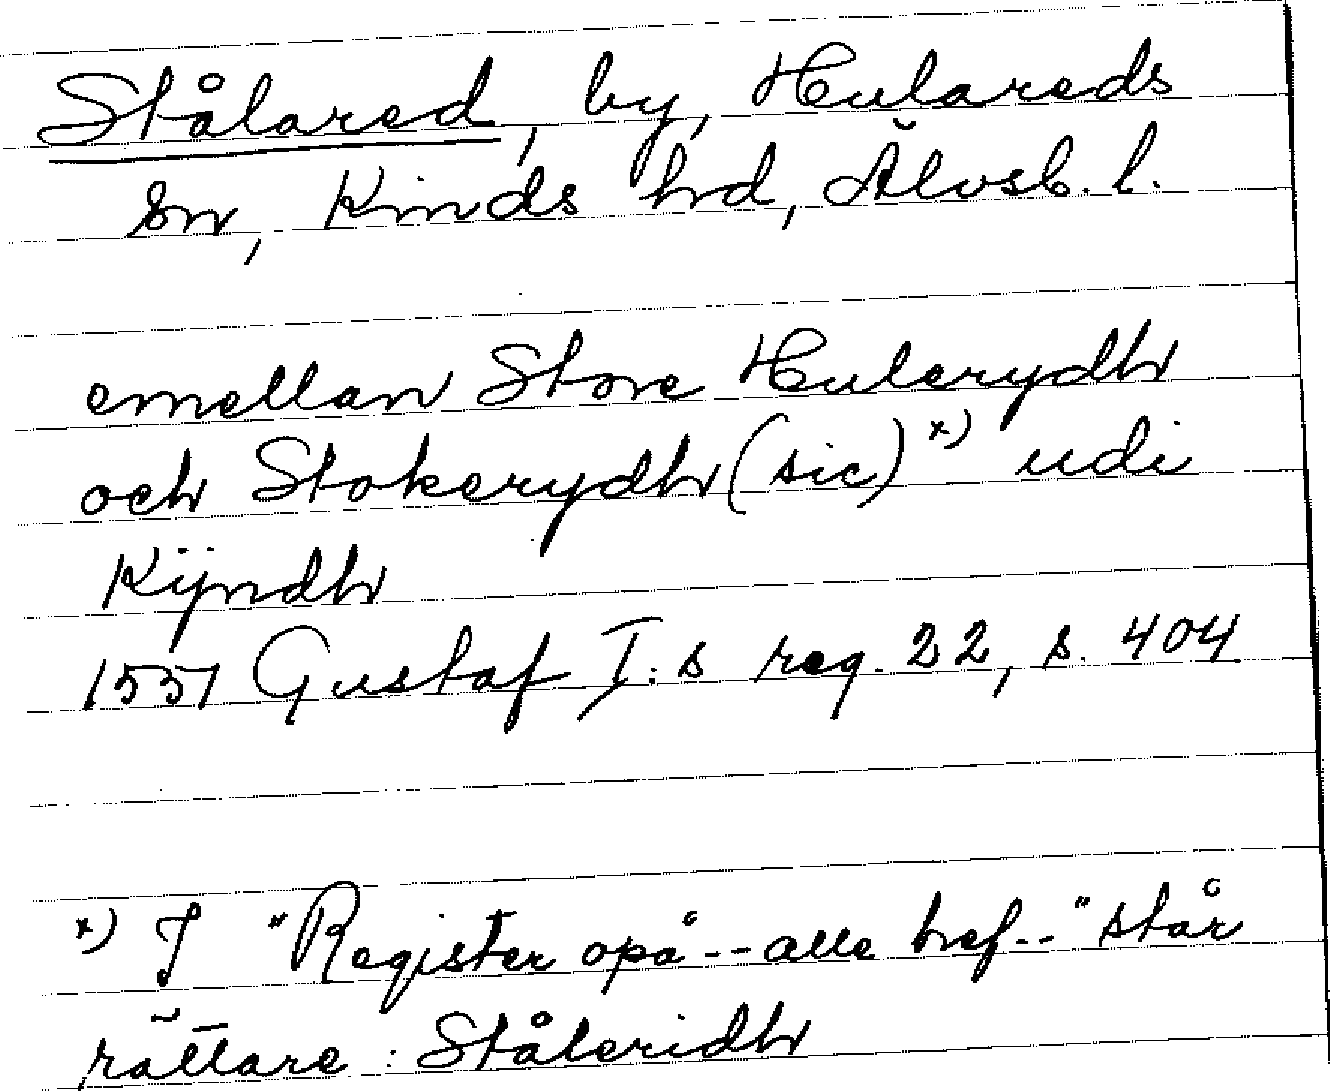 Stålared, by, Hulareds
sn, Kinds hd, Älvsb. l.
emellan Store Hulerydh
och Stokerydh (sic) x) udi
Kÿndh
1557 Gustaf I:s reg. 22, s. 404
x) I "Register opå -- alle bref --" står
rättare : Ståleridh